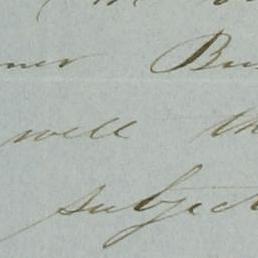 ner Bu
will th
subject